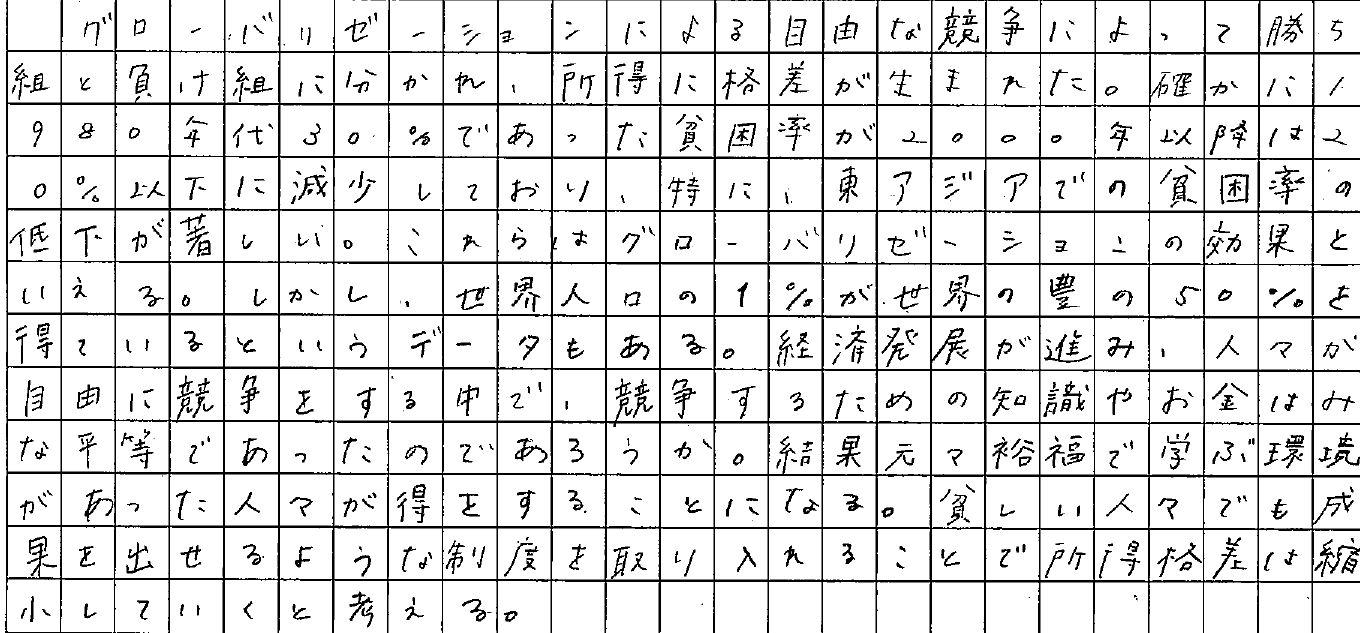 グローバリゼーションによる自由な競争によって勝ち
組と負け組に分かれ、所得に格差が生まれた。確かに1
980年代30%であった貧困率が2000年以降は2
0%以下に減少しており、特に、東アジアでの貧困率の
低下が著しい。これらはグローバリゼーションの効果と
いえる。しかし、世界人口の1%が世界の豊の50%を
得ているというデータもある。経済発展が進み、人々が
自由に競争をする中で、競争するための知識やお金はみ
な平等であったのであろうか。結果元々裕福で学ぶ環境
があった人々が得をすることになる。貧しい人々でも成
果を出せるような制度を取り入れることで所得格差は縮
小していくと考える。